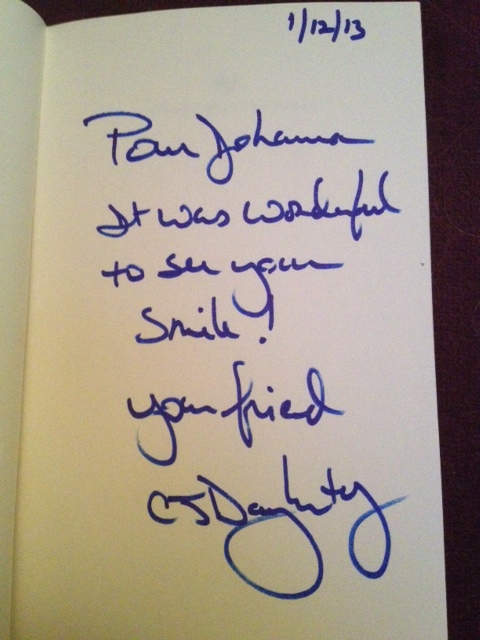 1/12/13
Pour Johanna
It was wonderful
to see your
smile!
your friend
CJ Daugherty